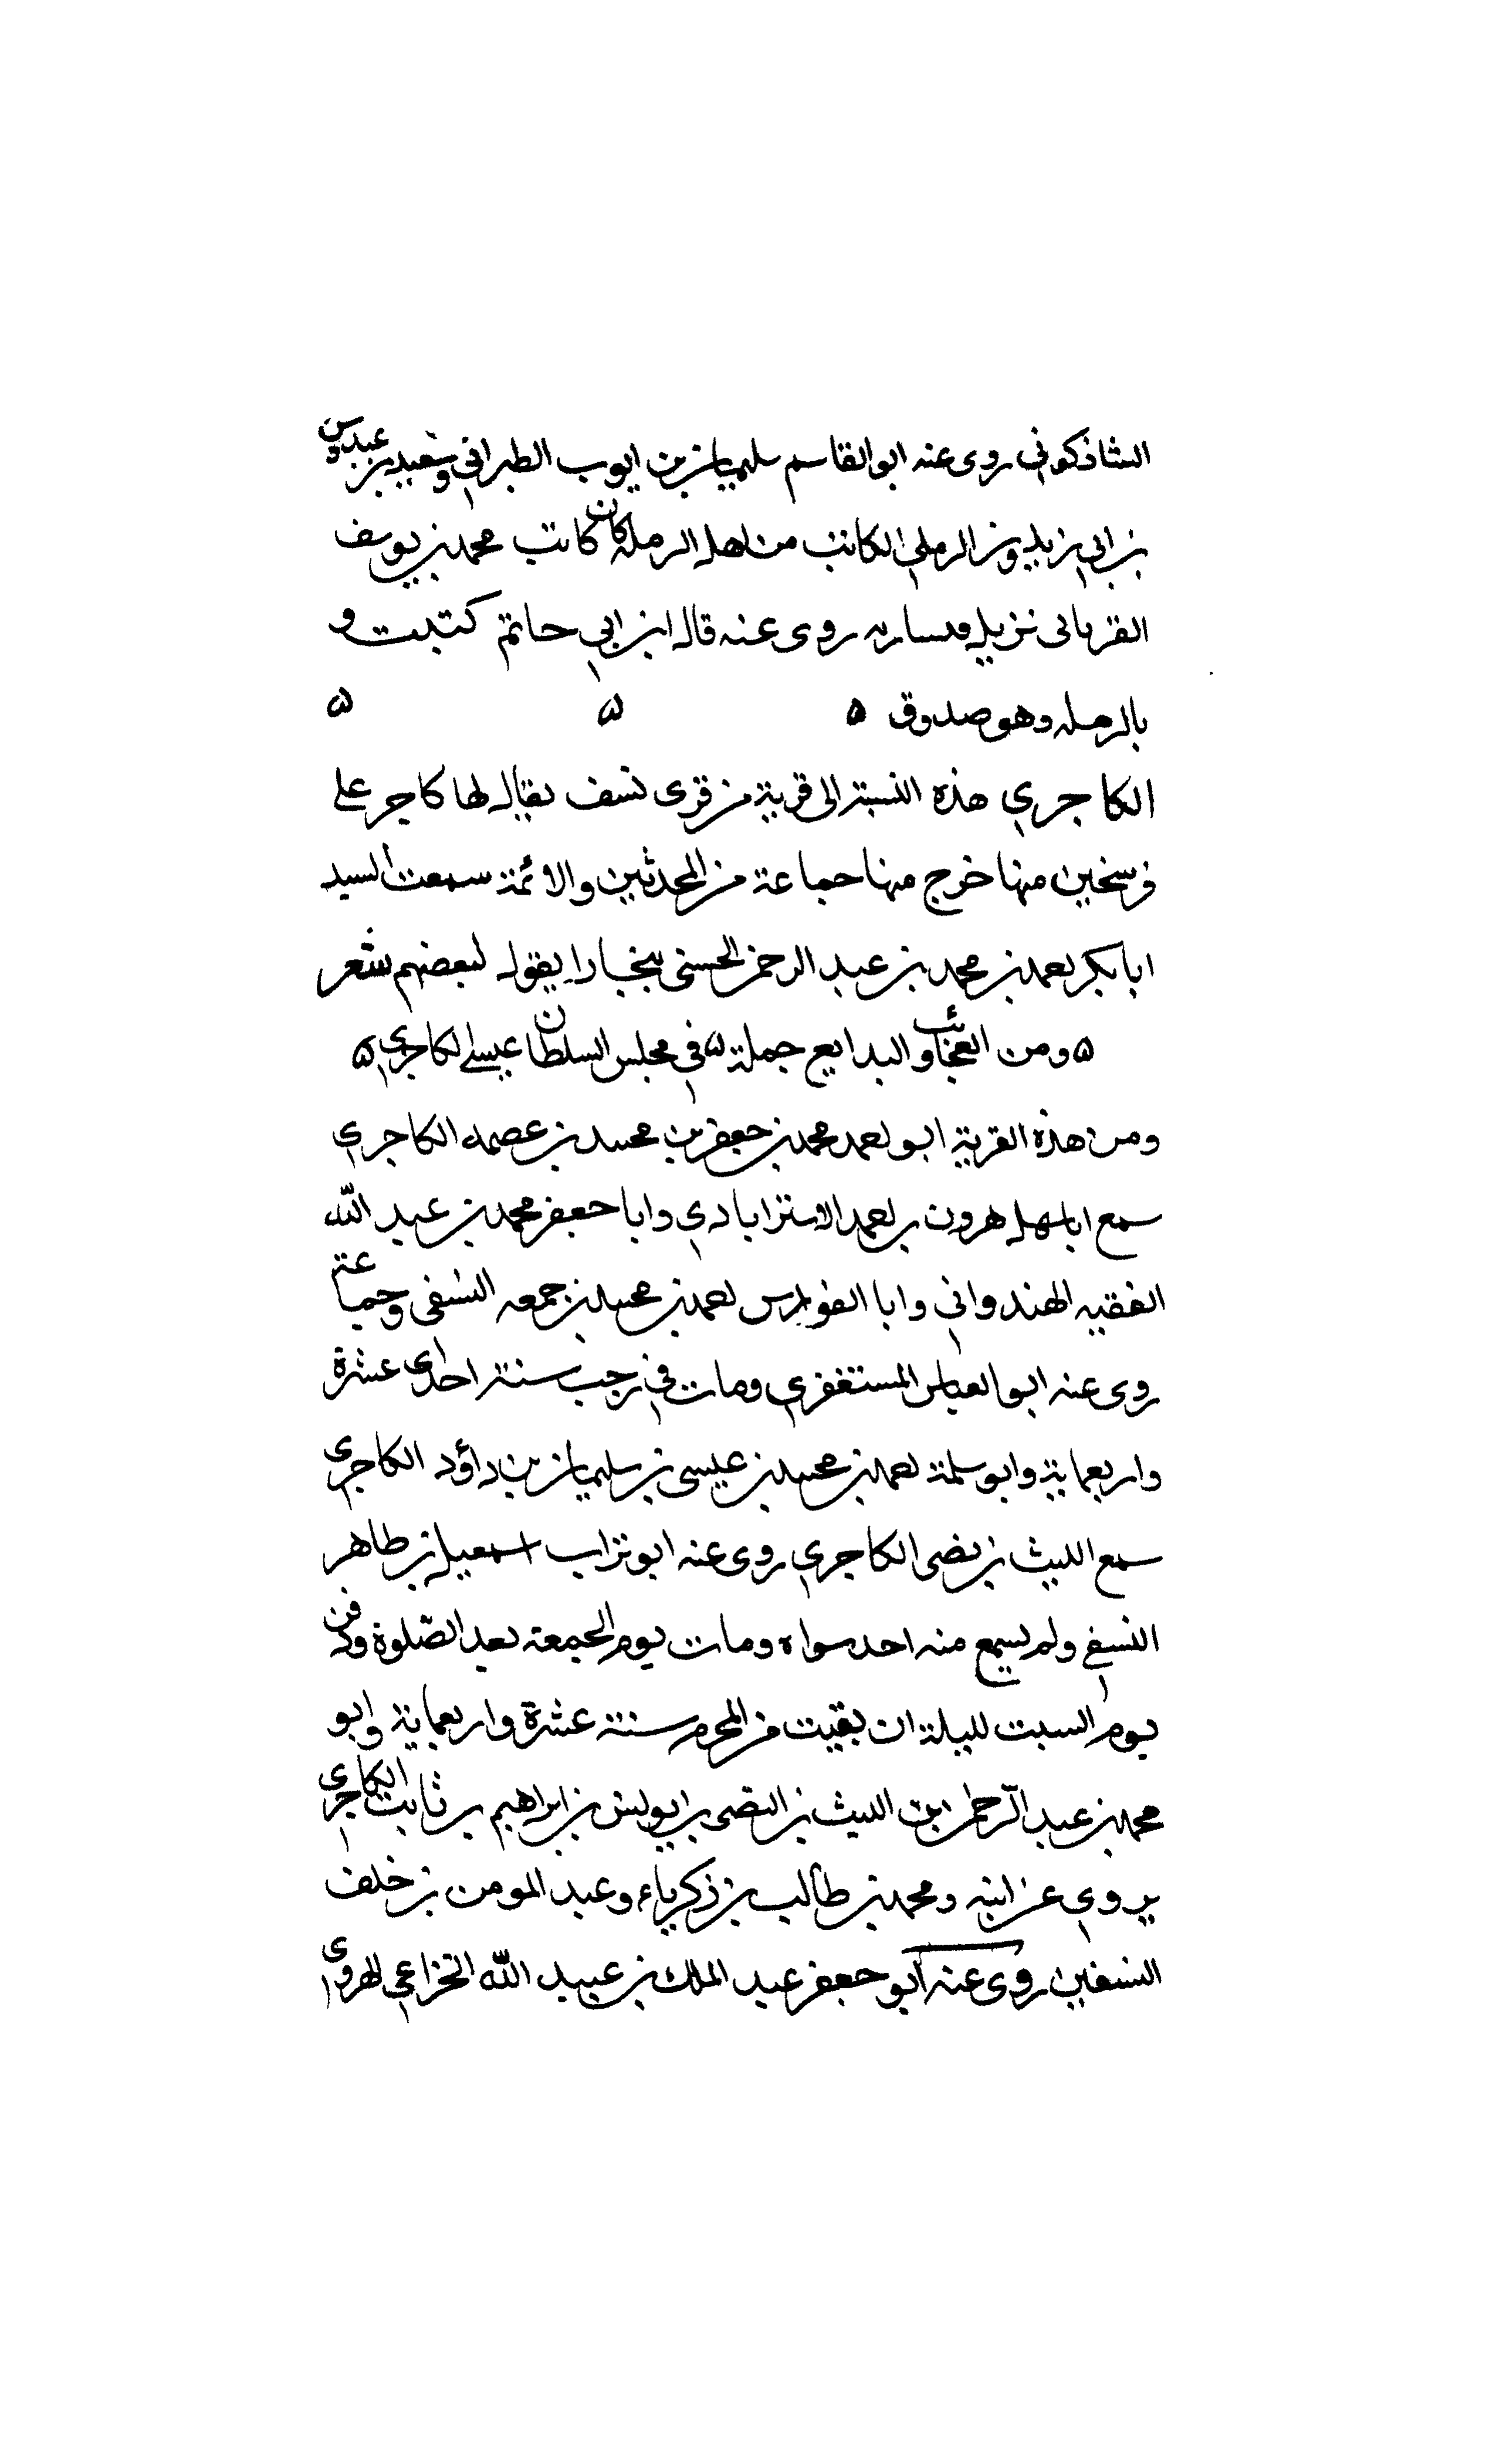 الشاذكوني روى عنه ابو القاسم سليمان بن ايوب الطبراني وسعيد بن عبدوس
بن ابي زيدون الرملي الكاتب من اهل الرملة كان كاتب محمد بن يوسف
الفريابي نزيل قيساريه روى عنه قال ابن ابي حاتم كتبت و
بالرمله وهو صدوق ه ه ه
الكاجري هذه النسبة الى قرية من قرى نسف يقال لها كاجر على
فرسخين منها خرج منها جماعة من المحدثين والائمة سمعت السيد
ابا بكر احمد بن محمد بن عبد الرحمن الحسني ببخارا يقول لبعضهم شعر
ه ومن العجائب والبدايع جملة ه في مجلس السلطان عيسى الكاجري ه
ومن هذه القرية ابو احمد محمد بن جعفر بن محمد بن عصمه الكاجري
سمع ابا سهل هرون بن احمد الاستراباذي وابا جعفر محمد بن عبد الله
الفقيه الهندواني وابا الفوارس احمد بن محمد بن جمعه النسفى وجماعة
روى عنه ابو العباس المستغفري ومات في رجب سنة احدى عشرة
واربعماية وابو سلمة احمد بن محمد بن عيسى بن سليمان بن داؤد الكاجري
سمع الليث بن نصر الكاجري روى عنه ابو تراب اسمعيل بن طاهر
النسفي ولم يسمع منه احد سواه ومات يوم الجمعة بعد الصلوة ودفن
يوم السبت لليلة ان بقيت من المحرم سنة عشرة واربعماية وابو
محمد بن عبد الرحمن ابن الليث بن النضر بن ابو ليس بن ابراهيم بن ثابت الكاجري
يروي عن ابيه ومحمد بن طالب بن زكرياء وعبد المومن بن خلف
النسفيين روى عنه ابو جعفر عبد الملك بن عبيد الله الخزاعي الهروى